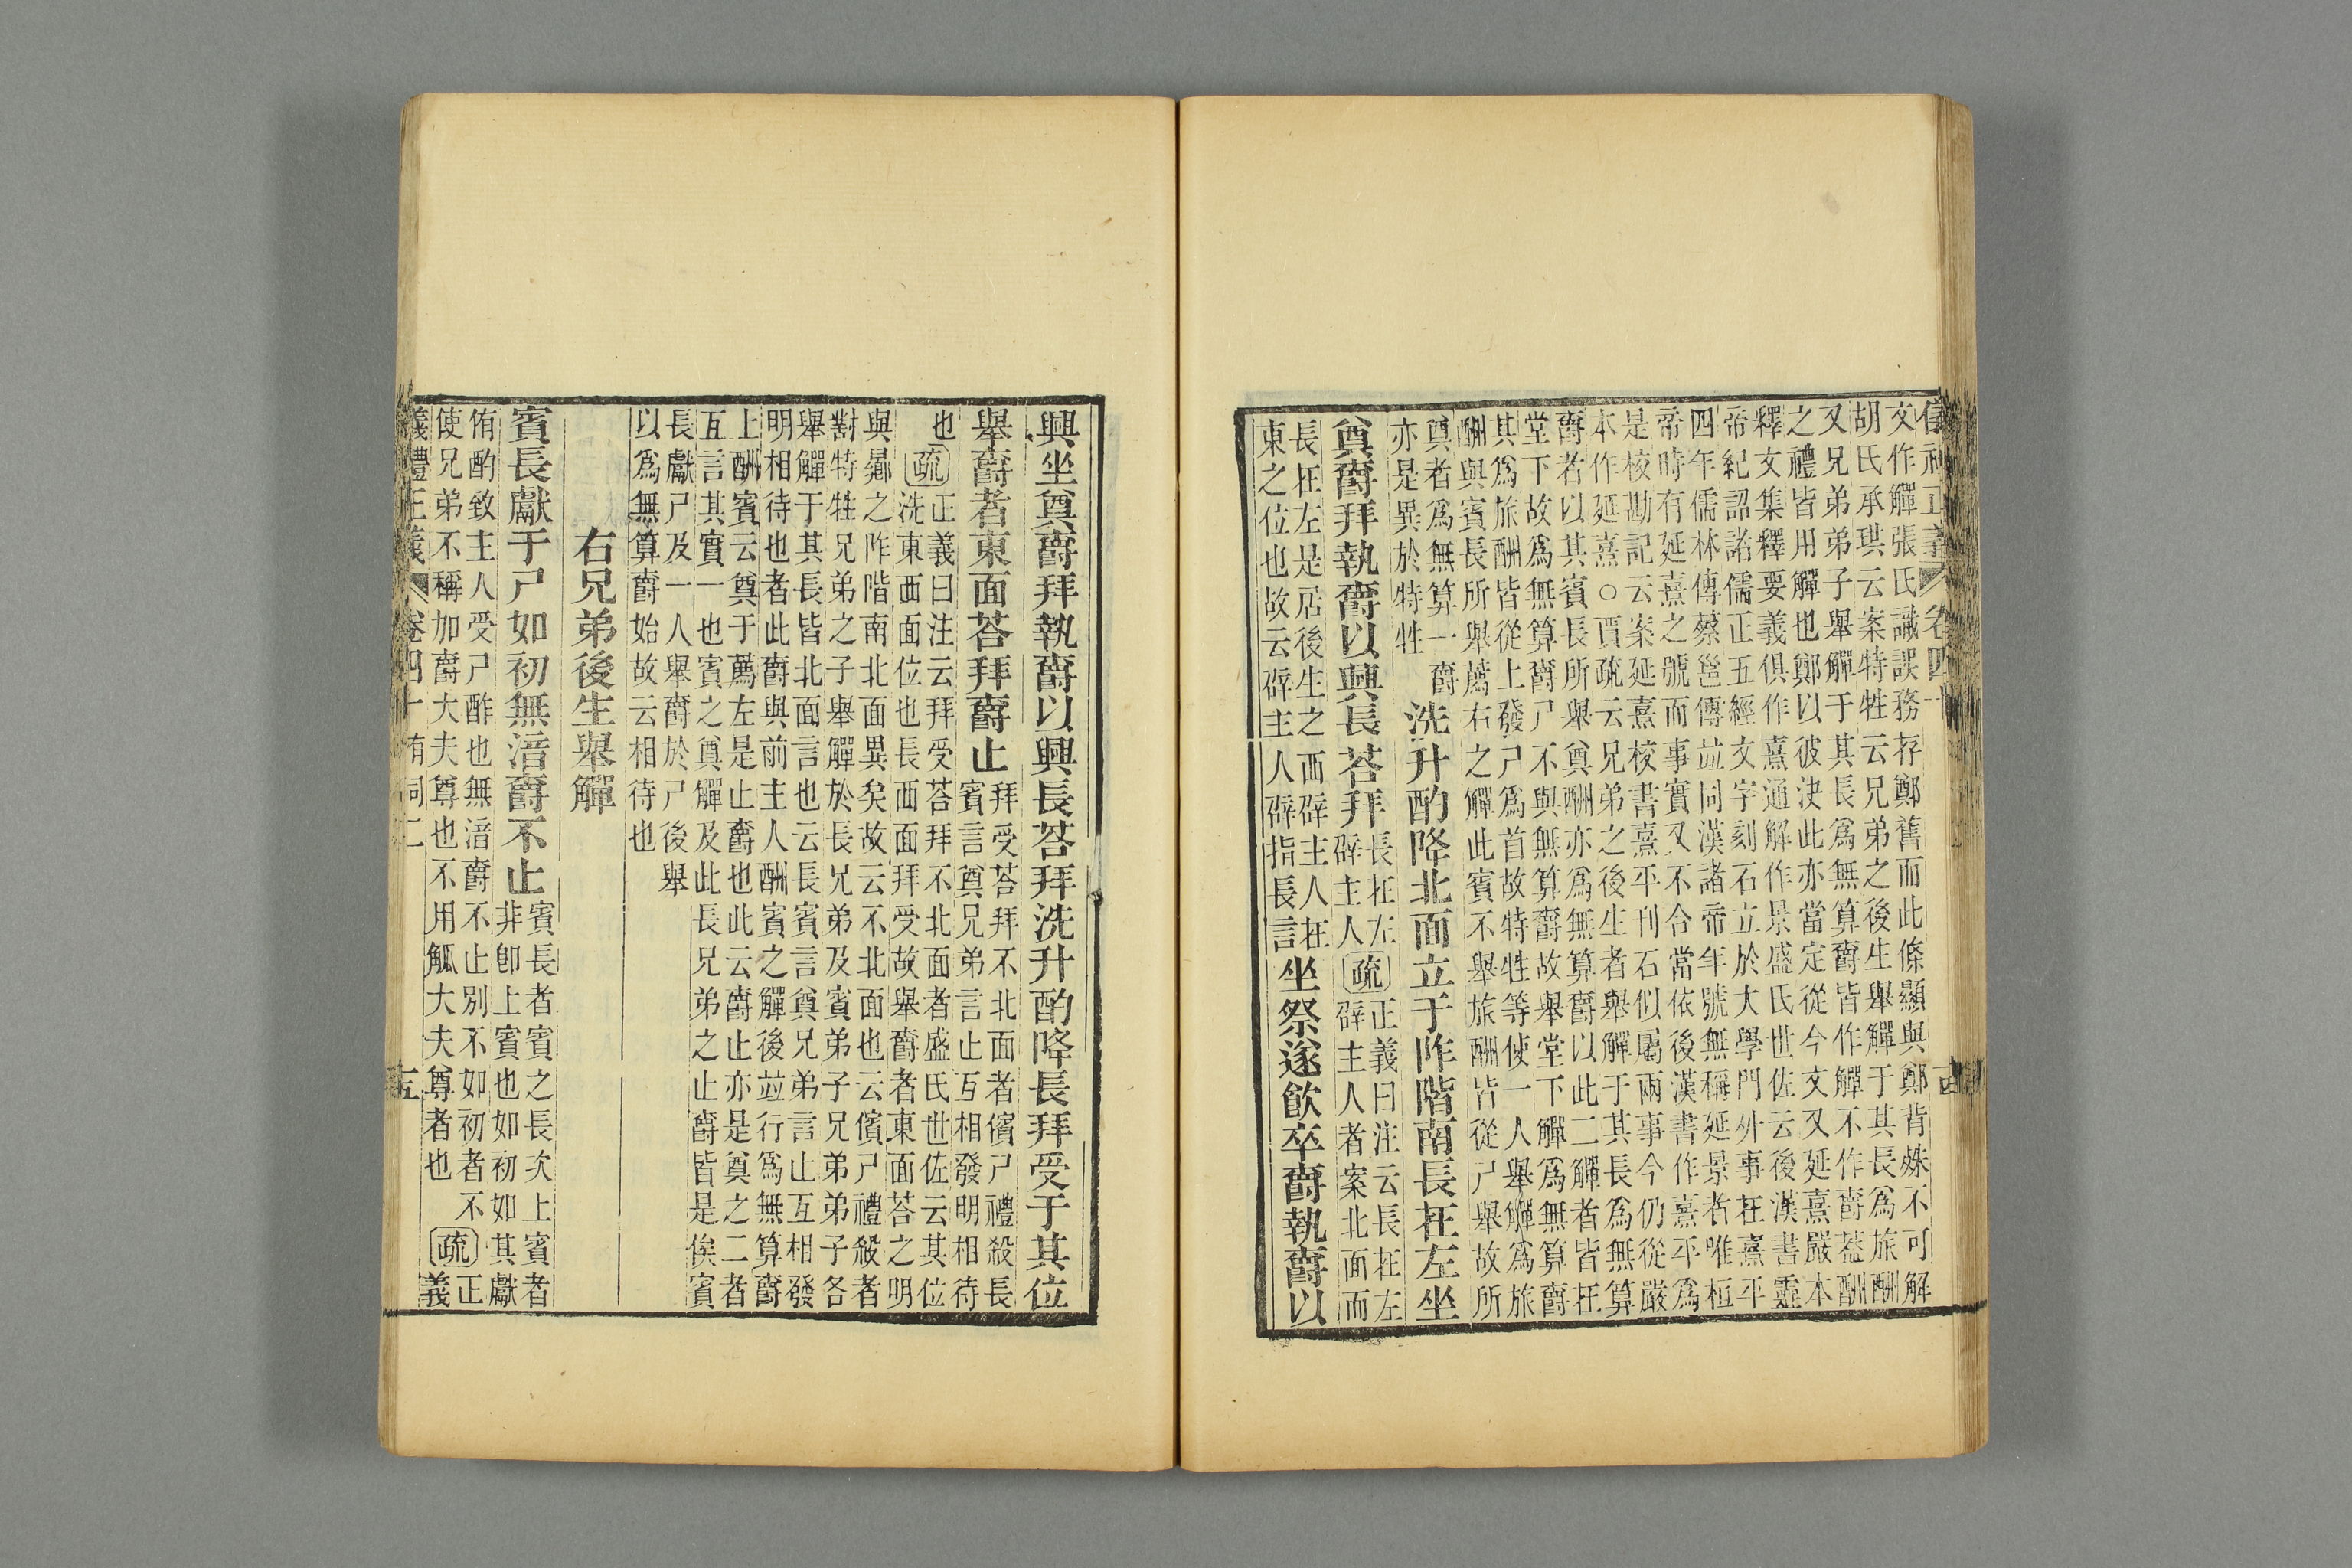 儀禮正義 卷四十
文作觶張氏識誤務存鄭舊而此條顯與鄭背殊不可解
胡氏承珙云案特牲云兄弟之後生舉觶于其長爲旅酬
又兄弟弟子舉觶于其長爲無算爵皆作觶不作爵葢酬
之禮皆用觶也鄭以彼決此亦當定從今文又延熹嚴本
釋文集釋要義俱作熹通解作景盛氏世佐云後漢書靈
帝紀詔諸儒正五經文字刻石立於大學門外事在熹平
四年儒林傳蔡邕傳竝同漢諸帝年號無稱延景者唯桓
帝時有延熹之號而事實又不合當依後漢書作熹平爲
是校勘記云案延熹校書熹平刊石似屬兩事今仍從嚴
本作延熹○賈疏云兄弟之後生者舉觶于其長爲無算
爵者以其賓長所舉奠酬亦爲無算爵以此二觶者皆在
堂下故爲無算爵尸不與無算爵故舉堂下觶爲無算爵
其爲旅酬皆從上發尸爲首故特牲等使一人舉觶爲旅
酬與賓長所舉薦右之觶此賓不舉旅酬皆從尸舉故所
奠者爲無算爵
亦是異於特牲
洗升酌降北面立于阼階南長在左坐
奠爵拜執爵以興長荅拜
長在左
辟主人
疏
正義曰注云長在左
辟主人者案北面而
長在左是居後生之西辟主人在
東之位也故云辟主人辟指長言
坐祭遂飲卒爵執爵以
興坐奠爵拜執爵以興長荅拜洗升酌降長拜受于其位
舉爵者東面荅拜爵止
拜受荅拜不北面者儐尸禮殺長
賓言奠兄弟言止互相發明相待
也
疏
正義曰注云拜受荅拜不北面者盛氏世佐云其位
洗東西面位也長西面拜受故舉爵者東面荅之明
與曏之阼階南北面異矣故云不北面也云儐尸禮殺者
對特牲兄弟之子舉觶於長兄弟及賓弟子兄弟弟子各
舉觶于其長皆北面言也云長賓言奠兄弟言止互相發
明相待也者此爵與前主人酬賓之觶後竝行爲無算爵
上酬賓云奠于薦左是止爵也此云爵止亦是奠之二者
互言其實一也賓之奠觶及此長兄弟之止爵皆是俟賓
長獻尸及一人舉爵於尸後舉
以爲無算爵始故云相待也
右兄弟後生舉觶
賓長獻于尸如初無湆爵不止
賓長者賓之長次上賓者
非卽上賓也如初如其獻
侑酌致主人受尸酢也無湆爵不止別不如初者不
使兄弟不稱加爵大夫尊也不用觚大夫尊者也
疏
正
義
儀禮正義 卷四十 有司二